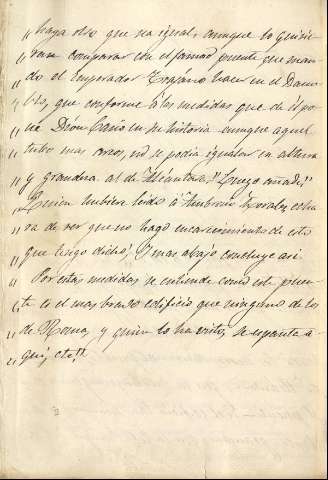 „ haga otro que sea igual, aunque lo quisie-
„ ran comparar con el famoso puente que man-
„ do el emperador Trajano hacer en el Danu-
„ bio, que conforme á las medidas que de él po-
„ ne Dion Casio en su historia aunque aquel
„ tubo mas arcos, no se podia igualar en altura
„ y grandeza al de Alcántara." Luego añade "
„ Quien hubiere leido á Ambrosio Morales echa-
„ ra de ver que no hago encarecimiento de esto
„ que tengo dicho," y mas abajo concluye asi
„ Por estas medidas se entiende como este puen-
„ te es el mas bravo edificio que ninguno de los
„ de Roma, y quien lo ha visto, se espanta á
„ qui, etc."